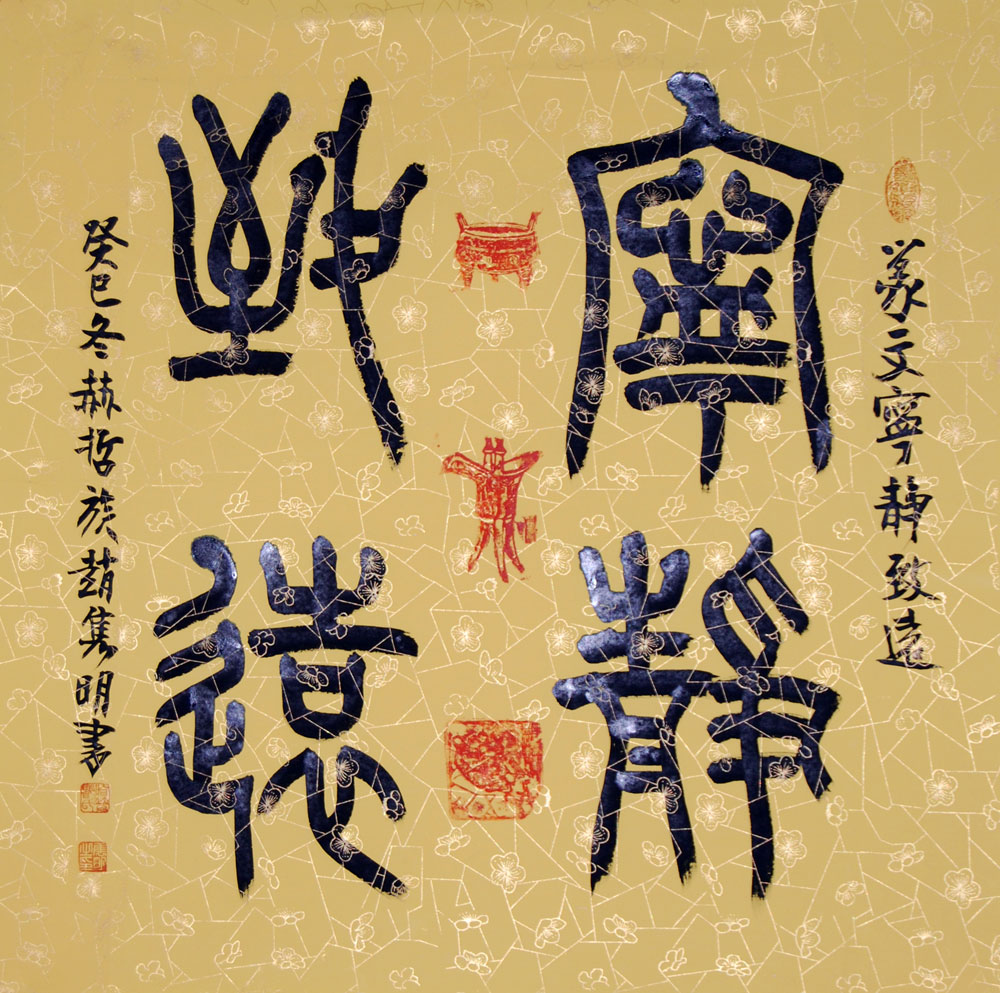 篆文寧靜致遠
寧靜
致遠
癸巳冬赫哲族趙隽明書